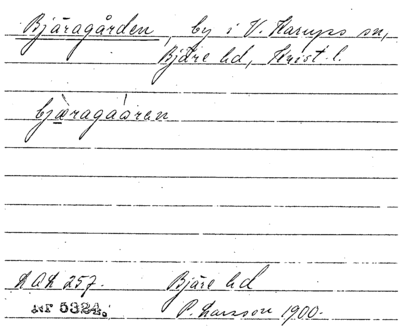 Bjäragården, by i V. Karups sn,
Bjäre hd, Krist. l.
bjæ̀ragáåran
DAL 257. Bjäre hd
Nr 5324. P. Larsson 1900.